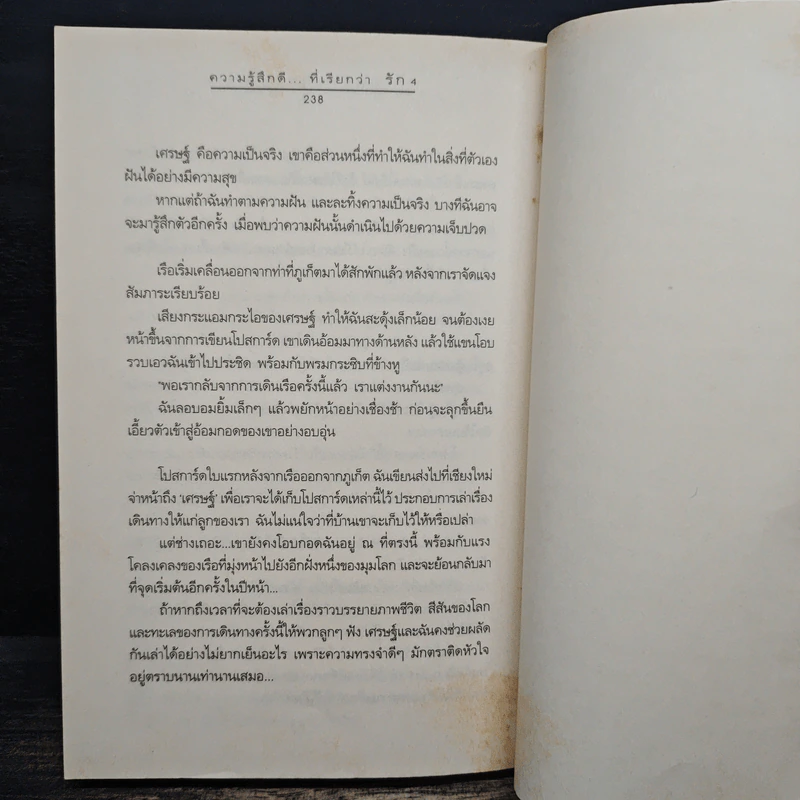 ความรู้สึกดี... ที่เรียกว่า รัก 4
238
เศรษฐ์ คือความเป็นจริง เขาคือส่วนหนึ่งที่ทำให้ฉันทำในสิ่งที่ตัวเอง
ฝันได้อย่างมีความสุข
หากแต่ถ้าฉันทำตามความฝัน และละทิ้งความเป็นจริง บางทีฉันอาจ
จะมารู้สึกตัวอีกครั้ง เมื่อพบว่าความฝันนั้นดำเนินไปด้วยความเจ็บปวด
เรือเริ่มเคลื่อนออกจากท่าที่ภูเก็ตมาได้สักพักแล้ว หลังจากเราจัดแจง
สัมภาระเรียบร้อย
เสียงกระแอมกระไอของเศรษฐ์ ทำให้ฉันสะดุ้งเล็กน้อย จนต้องเงย
หน้าขึ้นจากการเขียนโปสการ์ด เขาเดินอ้อมมาทางด้านหลัง แล้วใช้แขนโอบ
รวบเอวฉันเข้าไปประชิด พร้อมกับพรมกระซิบที่ข้างหู
"พอเรากลับจากการเดินเรือครั้งนี้แล้ว เราแต่งงานกันนะ"
ฉันลอบอมยิ้มเล็กๆ แล้วพยักหน้าอย่างเชื่องช้า ก่อนจะลุกขึ้นยืน
เอี้ยวตัวเข้าสู่อ้อมกอดของเขาอย่างอบอุ่น
โปสการ์ดใบแรกหลังจากเรือออกจากภูเก็ต ฉันเขียนส่งไปที่เชียงใหม่
จ่าหน้าถึง 'เศรษฐ์' เพื่อเราจะได้เก็บโปสการ์ดเหล่านี้ไว้ ประกอบการเล่าเรื่อง
เดินทางให้แก่ลูกของเรา ฉันไม่แน่ใจว่าที่บ้านเขาจะเก็บไว้ให้หรือเปล่า
แต่ช่างเถอะ...เขายังคงโอบกอดฉันอยู่ ณ ที่ตรงนี้ พร้อมกับแรง
โคลงเคลงของเรือที่มุ่งหน้าไปยังอีกฝั่งหนึ่งของมุมโลก และจะย้อนกลับมา
ที่จุดเริ่มต้นอีกครั้งในปีหน้า...
ถ้าหากถึงเวลาที่จะต้องเล่าเรื่องราวบรรยายภาพชีวิต สีสันของโลก
และทะเลของการเดินทางครั้งนี้ให้พวกลูกๆ ฟัง เศรษฐ์และฉันคงช่วยผลัด
กันเล่าได้อย่างไม่ยากเย็นอะไร เพราะความทรงจำดีๆ มักตราติดหัวใจ
อยู่ตราบนานเท่านานเสมอ...